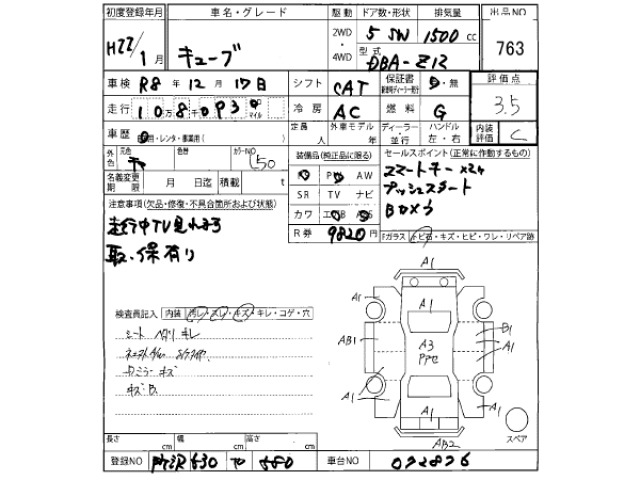 初度登録年月 車名・グレード 駆動 ドア数・形状 排気量 出品NO
H22/1月 キューブ 2WD・4WD 5 SW 1500cc 763
型式 DBA-Z12
車検 R8年12月17日 シフト CAT 保証書 有・無 評価点
走行 10万8千093 マイル 冷房 AC 燃料 G 3.5
車歴 自家用・レンタ・事業用( ) 定員 人 外車モデル 年 ディーラー・並行 ハンドル 左・右 内装評価 C
外色 元色 色替 カラーNO 装備品(純正品に限る) セールスポイント(正常に作動するもの)
名義変更期限 月 日迄 積載 t PS PW AW スマートキー×2ケ
SR TV ナビ プッシュスタート
注意事項(欠品・修復・不具合箇所および状態) カワ エアB ABS Bカメラ
走行中TV見れます R券 9820円 Fガラス トビ石・キズ・ヒビ・ワレ・リペア跡
取、保有り
検査員記入 内装 汚レ・スレ・キズ・キレ・コゲ・穴
シート ヘタリ キレ
ミラー キズ
キズ B
A1
A1 A1 A1
AB1 A3 B1
A1
A1 A1 A1
AB2 スペア
長さ cm 幅 cm 高さ cm
登録NO 所沢 530 て 580 車台NO 072876